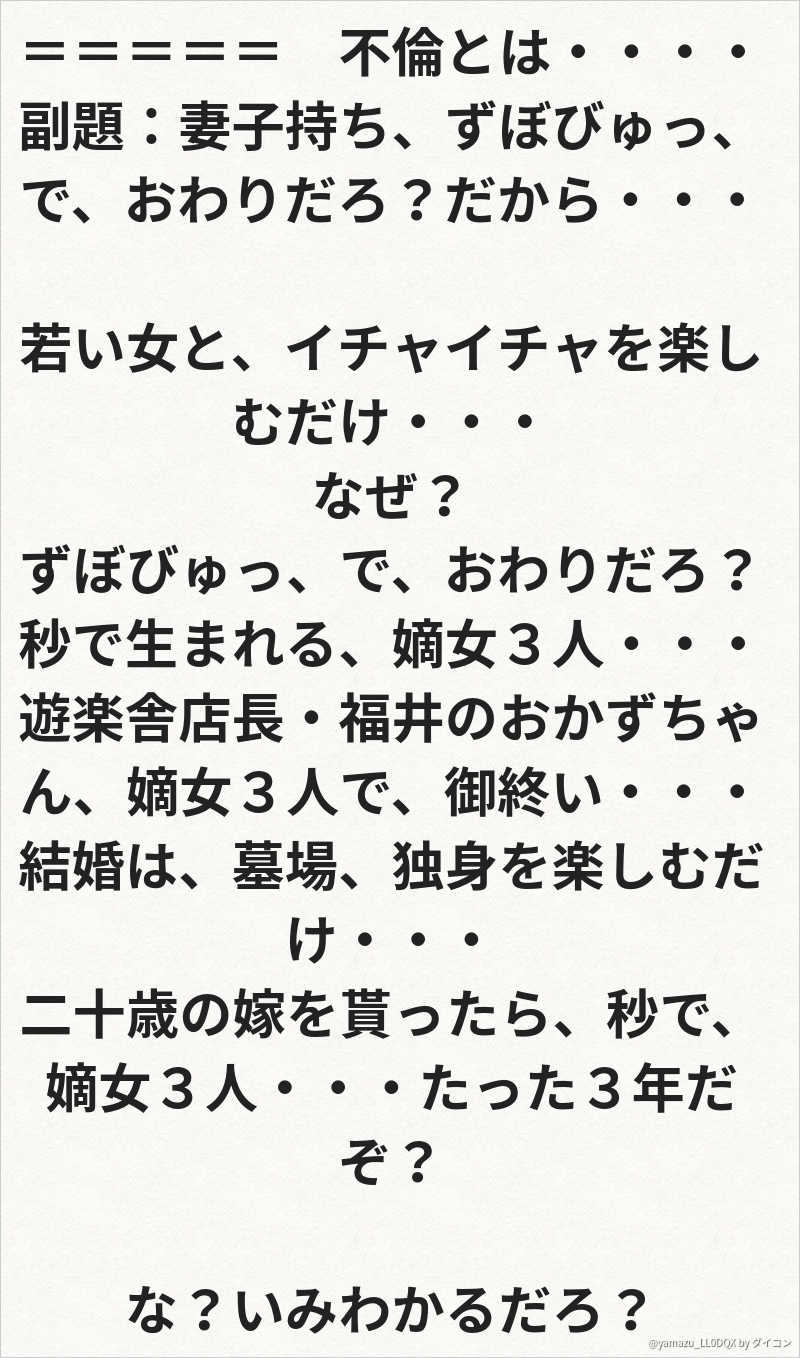 ＝＝＝＝＝　不倫とは・・・・
副題：妻子持ち、ずぼびゅっ、
で、おわりだろ？だから・・・
若い女と、イチャイチャを楽し
むだけ・・・
なぜ？
ずぼびゅっ、で、おわりだろ？
秒で生まれる、嫡女３人・・・
遊楽舎店長・福井のおかずちゃ
ん、嫡女３人で、御終い・・・
結婚は、墓場、独身を楽しむだ
け・・・
二十歳の嫁を貰ったら、秒で、
嫡女３人・・・たった３年だ
ぞ？
な？いみわかるだろ？
@yamazu_LL0DQX by ダイコン